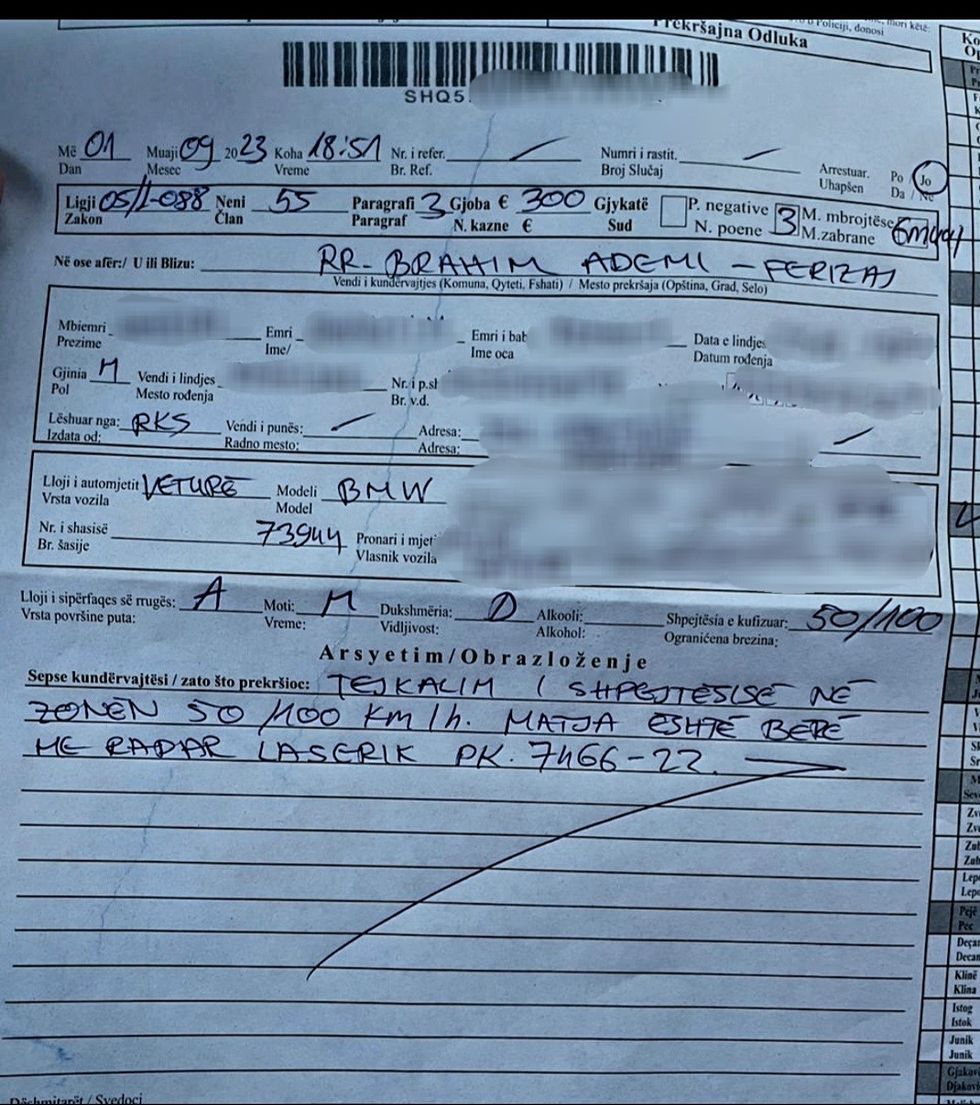 Prekršajna Odluka
SHQ5
Më 01 Muaji 09 2023 Koha 18:51 Nr. i refer. Numri i rastit.
Dan Mesec Vreme Br. Ref. Broj Slučaj
Arrestuar. Po Jo
Uhapšen Da / Ne
Ligji 05/L-088 Neni 55 Paragrafi 3 Gjoba € 300 Gjykatë P. negative 3 M. mbrojtëse 6M
Zakon Član Paragraf N. kazne € Sud N. poene M.zabrane
Në ose afër:/ U ili Blizu: RR- BRAHIM ADEMI - FERIZAJ
Vendi i kundërvajtjes (Komuna, Qyteti, Fshati) / Mesto prekršaja (Opština, Grad, Selo)
Mbiemri Emri Emri i bab Data e lindjes
Prezime Ime/ Ime oca Datum rođenja
Gjinia M Vendi i lindjes Nr. i p.sh
Pol Mesto rođenja Br. v.d.
Lëshuar nga: RKS Vendi i punës: Adresa:
Izdata od: Radno mesto: Adresa:
Lloji i automjetit VETURË Modeli BMW
Vrsta vozila Model
Nr. i shasisë 73944 Pronari i mjet
Br. šasije Vlasnik vozila
Lloji i sipërfaqes së rrugës: A Moti: M Dukshmëria: D Alkooli: Shpejtësia e kufizuar: 50/100
Vrsta površine puta: Vreme: Vidljivost: Alkohol: Ograničena brezina:
Arsyetim/Obrazloženje
Sepse kundërvajtësi / zato što prekršioc: TEJKALIM I SHPEJTËSISË NË
ZONËN 50/100 KM/h. MATJA ËSHTË BËRË
ME RADAR LASERIK PK. 7466-22.
Dëshmitarët / Svedoci
Deçan
Decan
Klinë
Klina
Istog
Istok
Junik
Junik